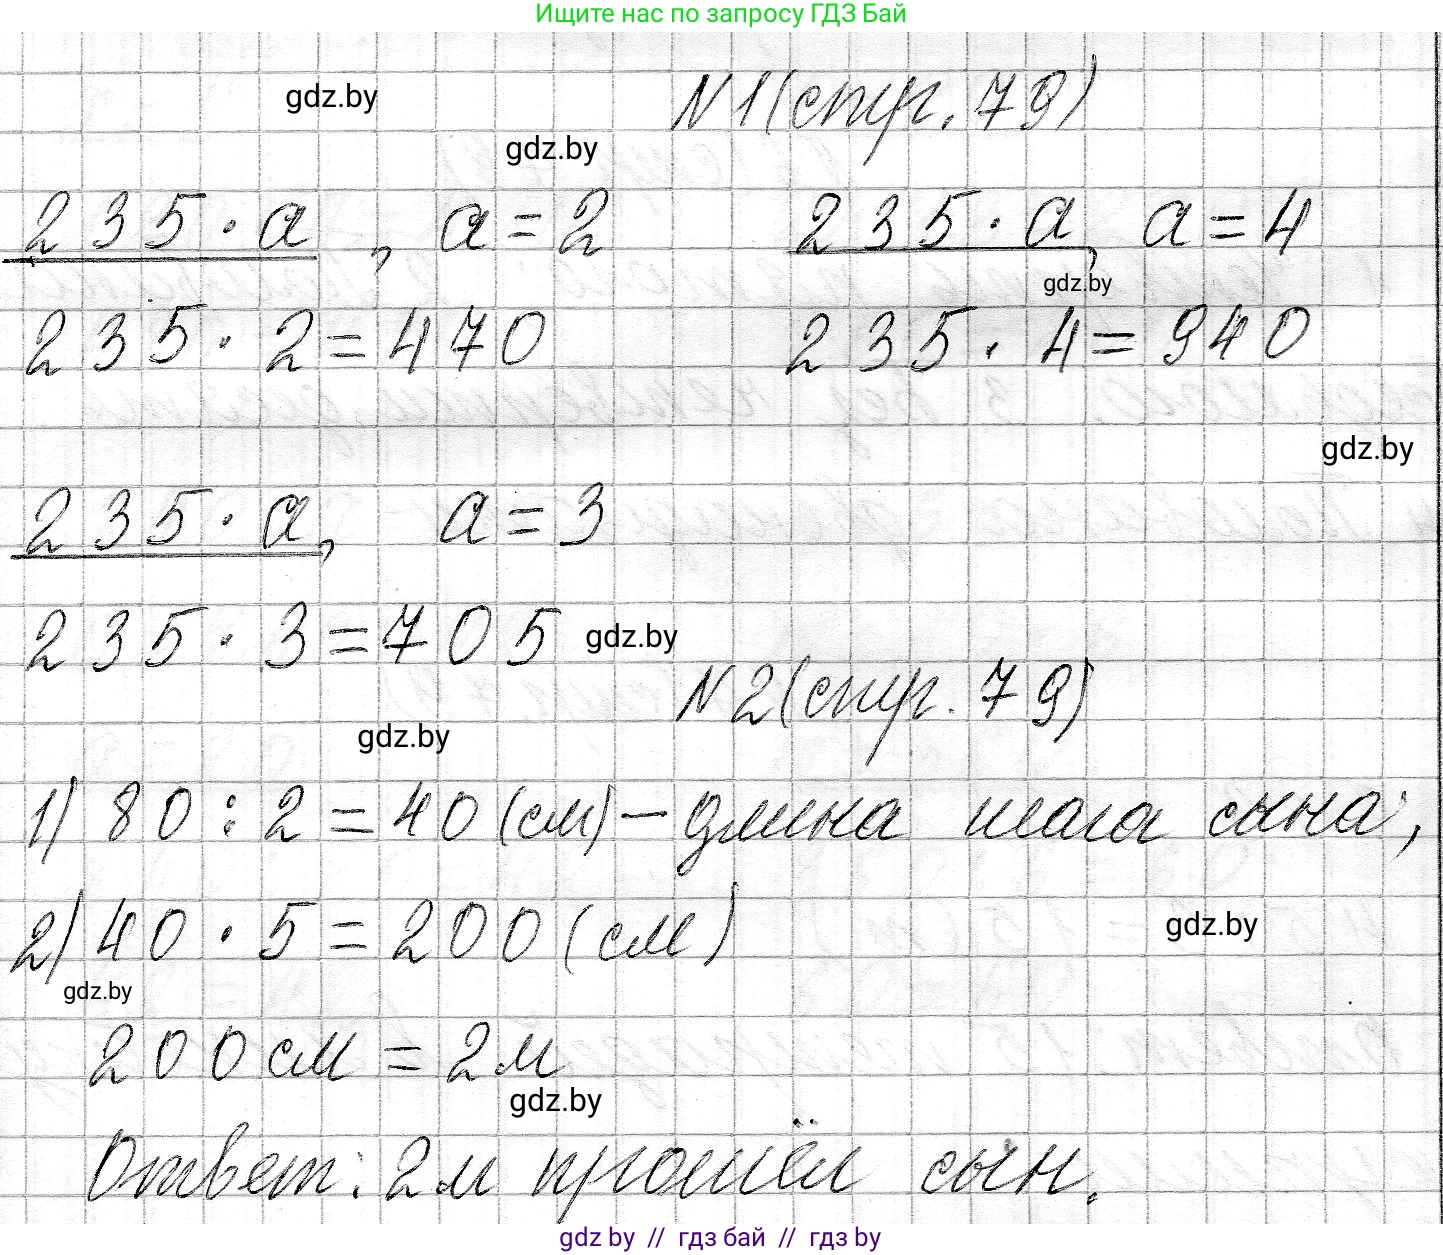 Ищите нас по запросу ГДЗ Бай
gdz.by
N1(стр. 79)
gdz.by
235 · a , a = 2
235 · a, a = 4
gdz.by
235 · 2 = 470
235 · 4 = 940
gdz.by
235 · a, a = 3
235 · 3 = 705
gdz.by
N2(стр. 79)
gdz.by
1) 80 : 2 = 40 (см) – длина шага сына;
2) 40 · 5 = 200 (см)
gdz.by
gdz.by
200 см = 2 м
gdz.by
Ответ: 2 м прошёл сын.
gdz.by // гдз бай // гдз by